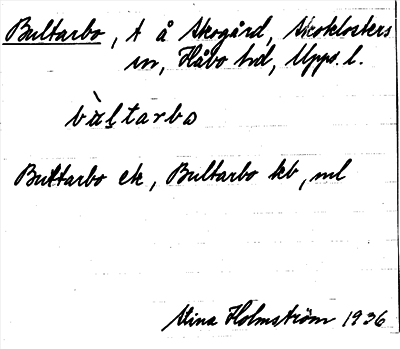 Bultarbo, t å Skogård, Skoklosters
sn, Håbo hd, Upps. l.
bùḷtarbo
Bultarbo ek, Bultarbo kb, ml
Stina Holmström 1936